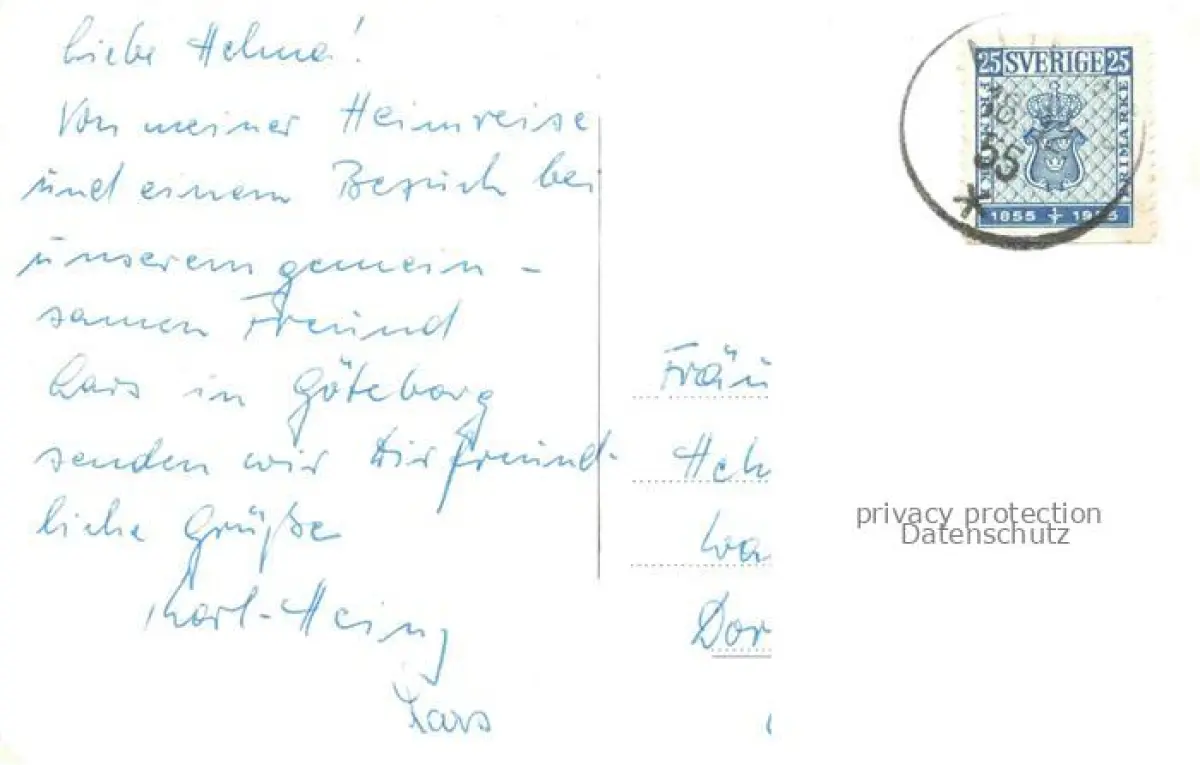 Liebe Helma!
Von meiner Heimreise
und einem Besuch bei
unserem gemein-
samen Freund
Lars in Göteborg
senden wir Dir freund-
liche Grüße
Karl-Heinz
Lars
25 SVERIGE 25
FRIMÄRKE
FRIMÄRKE
1855 1955
55
Fräu
Hel
Wa
Dor
privacy protection
Datenschutz